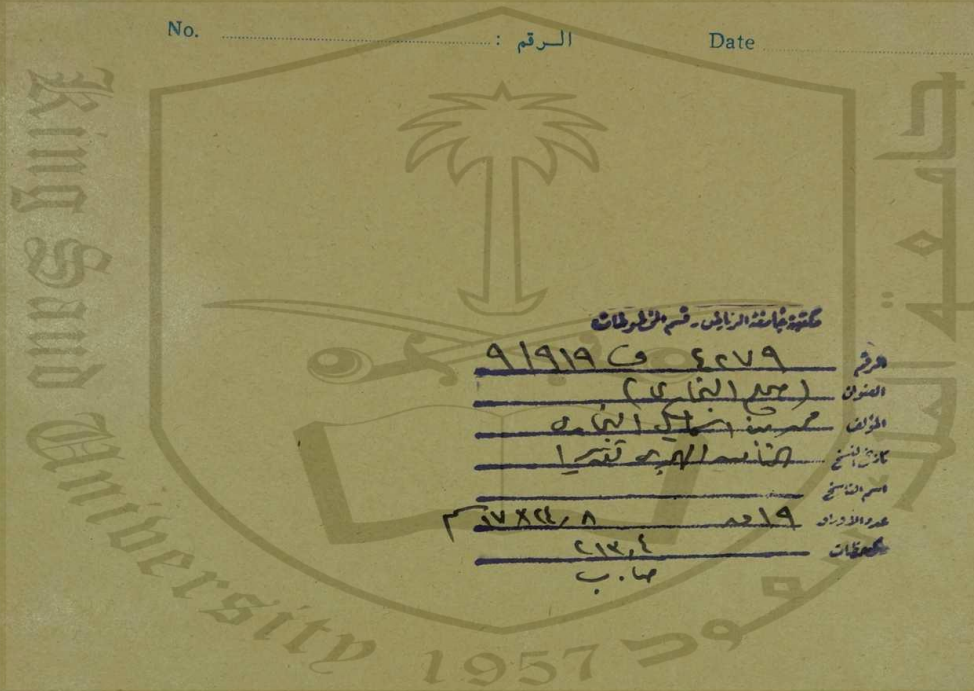 No. الرقم :
Date
King Saud University 1957
مكتبة جامعة الرياض - قسم المخطوطات
الرقم ٤٢٧٩ ف ٩١٩/٩
العنوان (صحيح البخاري)
المؤلف محمد بن اسماعيل البخاري
تاريخ النسخ الثامن الهجري تقديرا
اسم الناسخ
عدد الاوراق ١٩ ١٧×٢٤,٨ سم
ملاحظات ٢١٣,٤
ص.ب